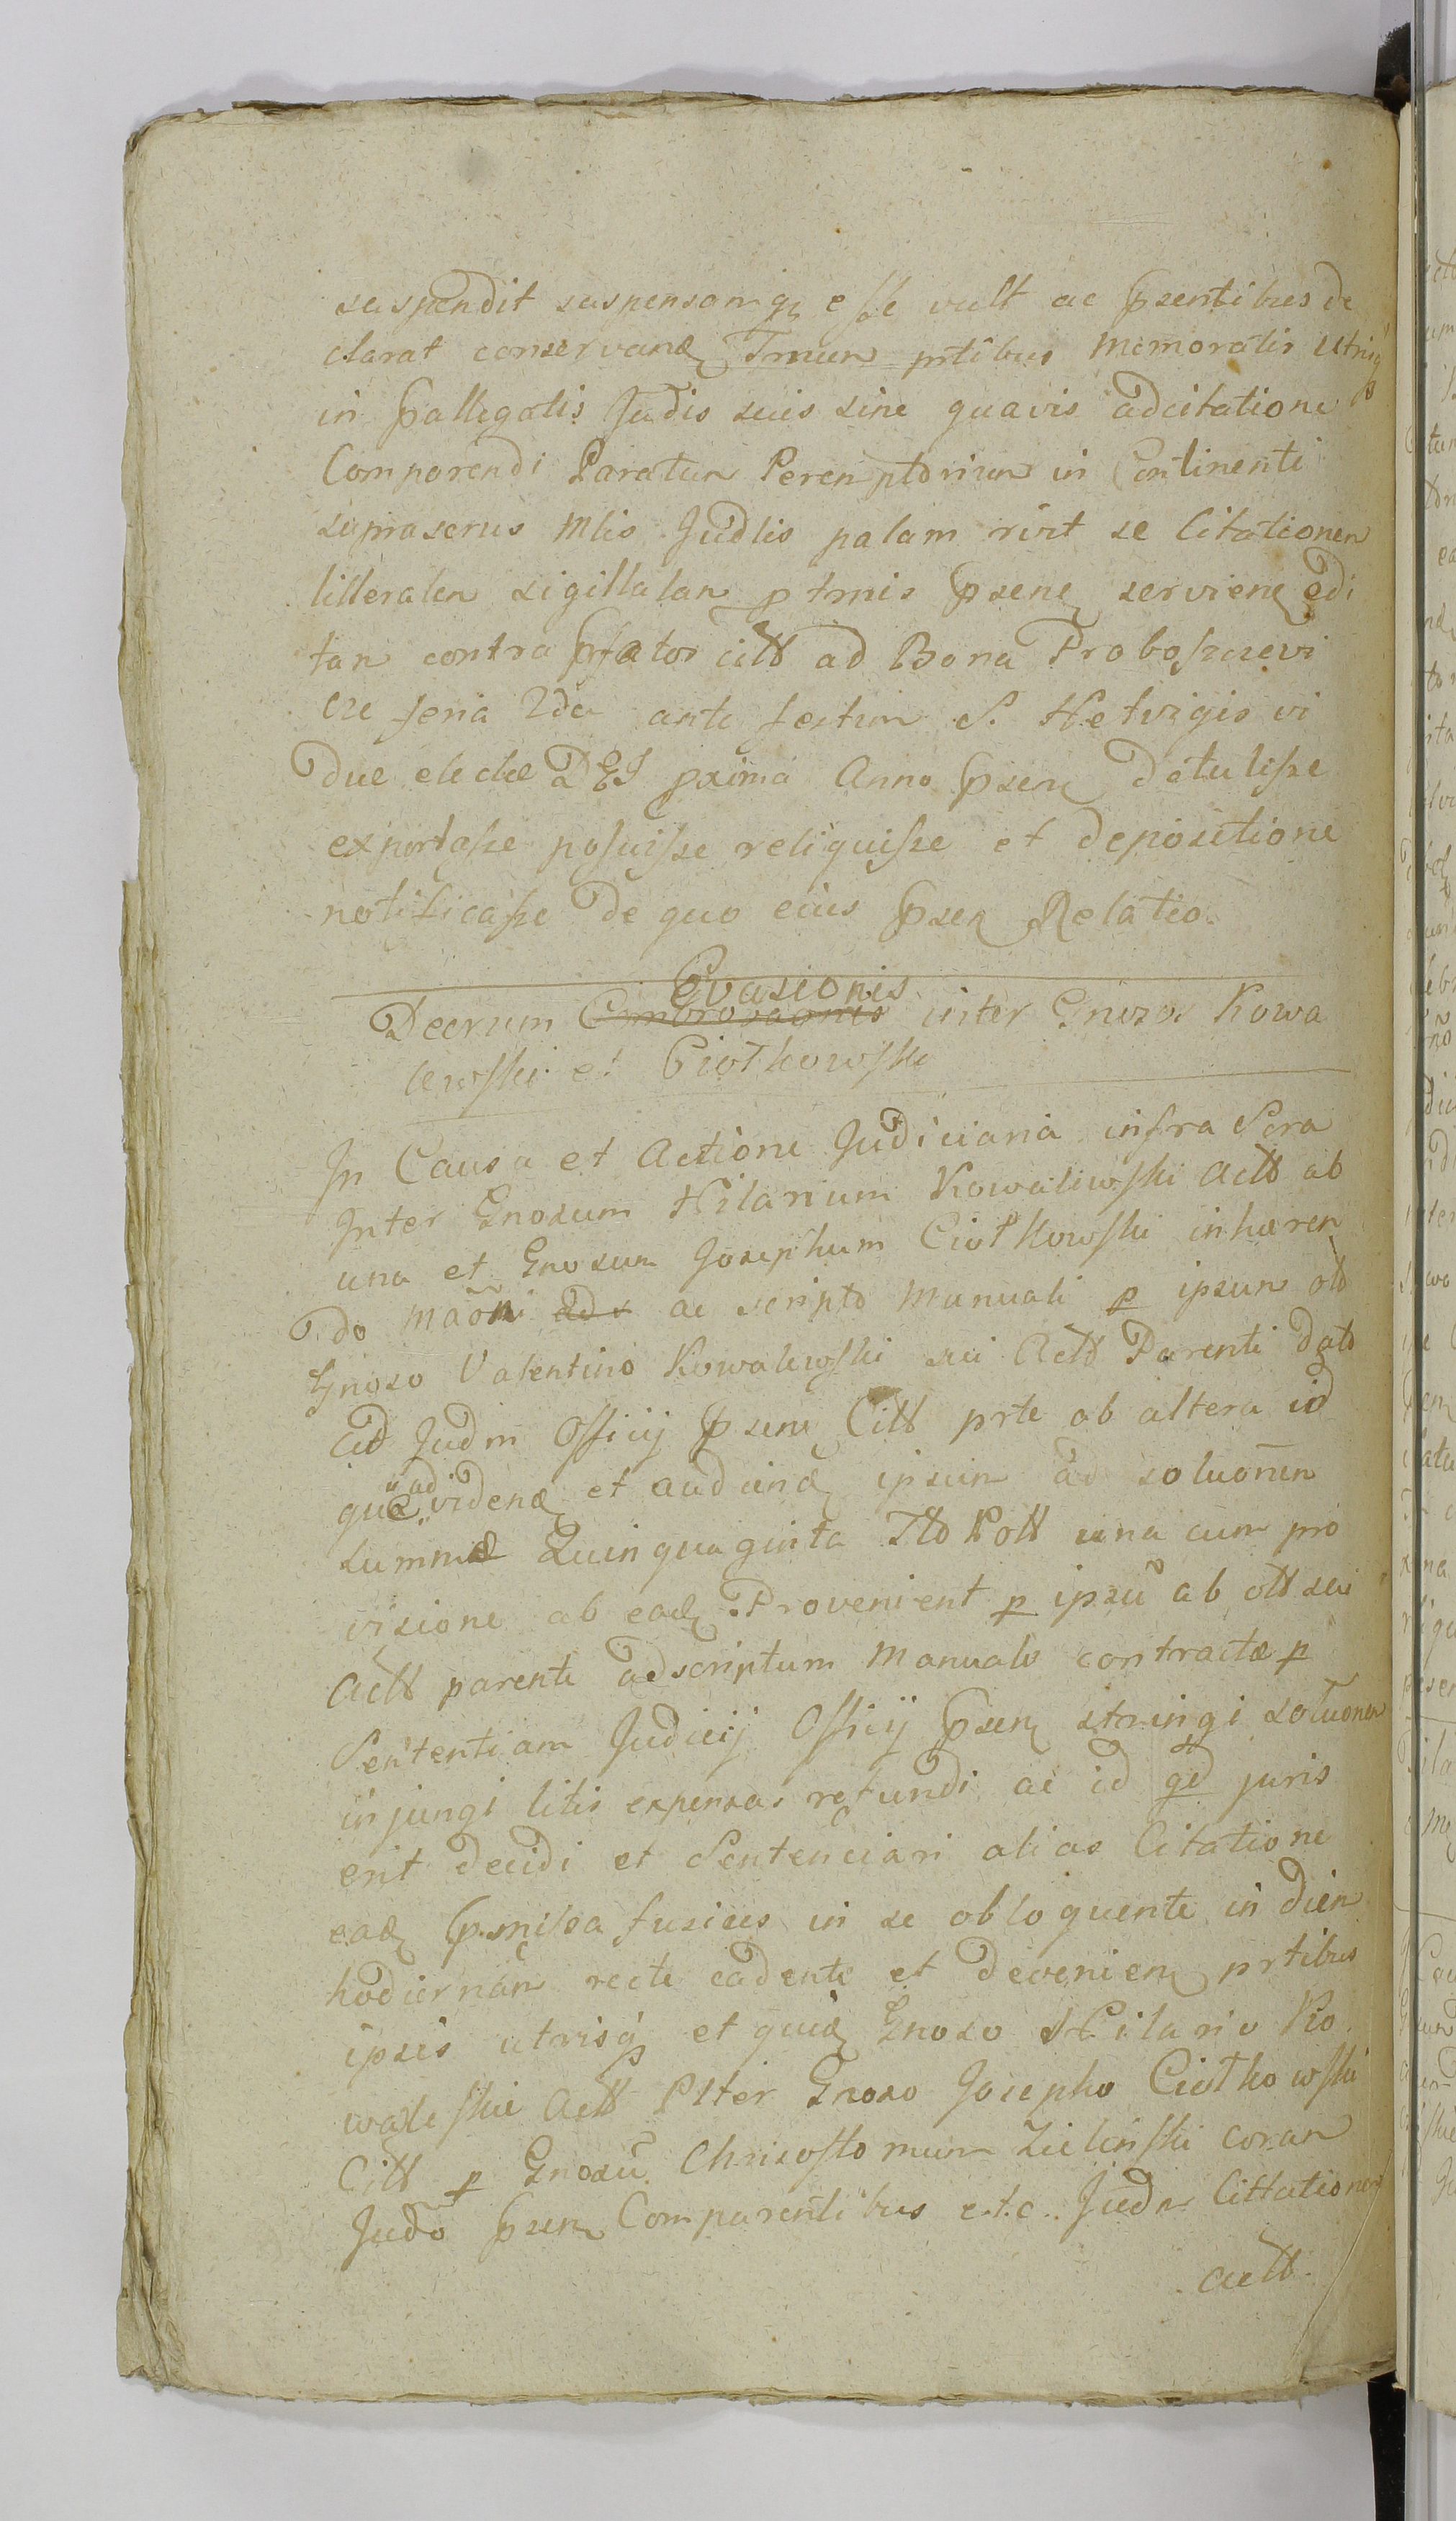 suspendit suspensamq esse vult ac psentibus de
clarat conservand Tmum ptibus memoratis utrisq
in pallegatis Judis suis sine quavis adcitatione
Comparendi Paratum Peremptorium in Continenti
suprascrus Mlis Judlis palam rivit se Citationem
litteralem sigillatam p tmis psen servien edi
tam contra pfatos citt ad Bona Proboszczewi
cze feria 2da ante festum S. Hetvigis vi
due electæ DEI pxima Anno psen detulisse
exportasse posuisse reliquisse et depositione
notificasse de quo eius psen Relatio.
Decrum Evasionis inter Gnosos Kowa
lewski et Ciotkowski
In Causa et Actione Judiciaria infra Scra
Inter Gnosum Hilarium Kowalewski Actt ab
una et Gnosum Josephum Ciotkowski inhæren
do maõni ac scripto Manuali p ipsum ott
Gnoso Valentino Kowalewski sui Actt Parenti dato
Ad Judm Officij psens Citt prte ab altera id
que ad vidend et audiend ipsum ad soluonem
summæ Quinquaginta Tto Pott una cum pro
visione ab ead Provenient p ipsũ ab ott sui
Actt parente adscriptum Manuale contractæ p
Sententiam Judicij Officij psen stringi soluonem
injungi litis expensas refundi ac id qd juris
erit decidi et Sentenciari alias Citatione
ead pmissa fusius in se obloquente in diem
hodiernam recte cadente et devenien prtibus
ipsis utrisq et quid Gnoso Hilario Ko
waleskie Actt Plter Gnoso Josepho Ciotkowski
Citt p Gnosũ Chrisostomum Zielinski coram
Judõ psen Comparentibus etc. Judm Cittationem
actt.